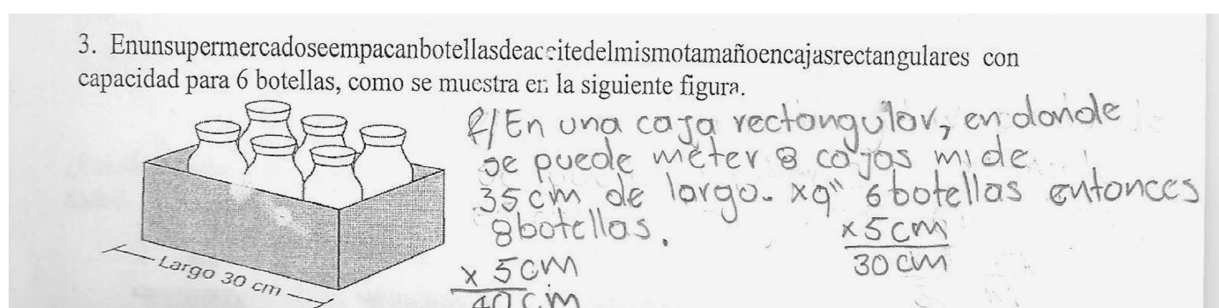 3. Enunsupermercadoseempacanbotellasdeaceitedelmismotamañoencajasrectangulares con
capacidad para 6 botellas, como se muestra en la siguiente figura.
R/ En una caja rectangular, en donde
se puede meter 8 cajas mide
35 cm de largo. xq" 6 botellas entonces
8 botellas.
x 5 cm
30 cm
x 5 cm
40 cm
Largo 30 cm